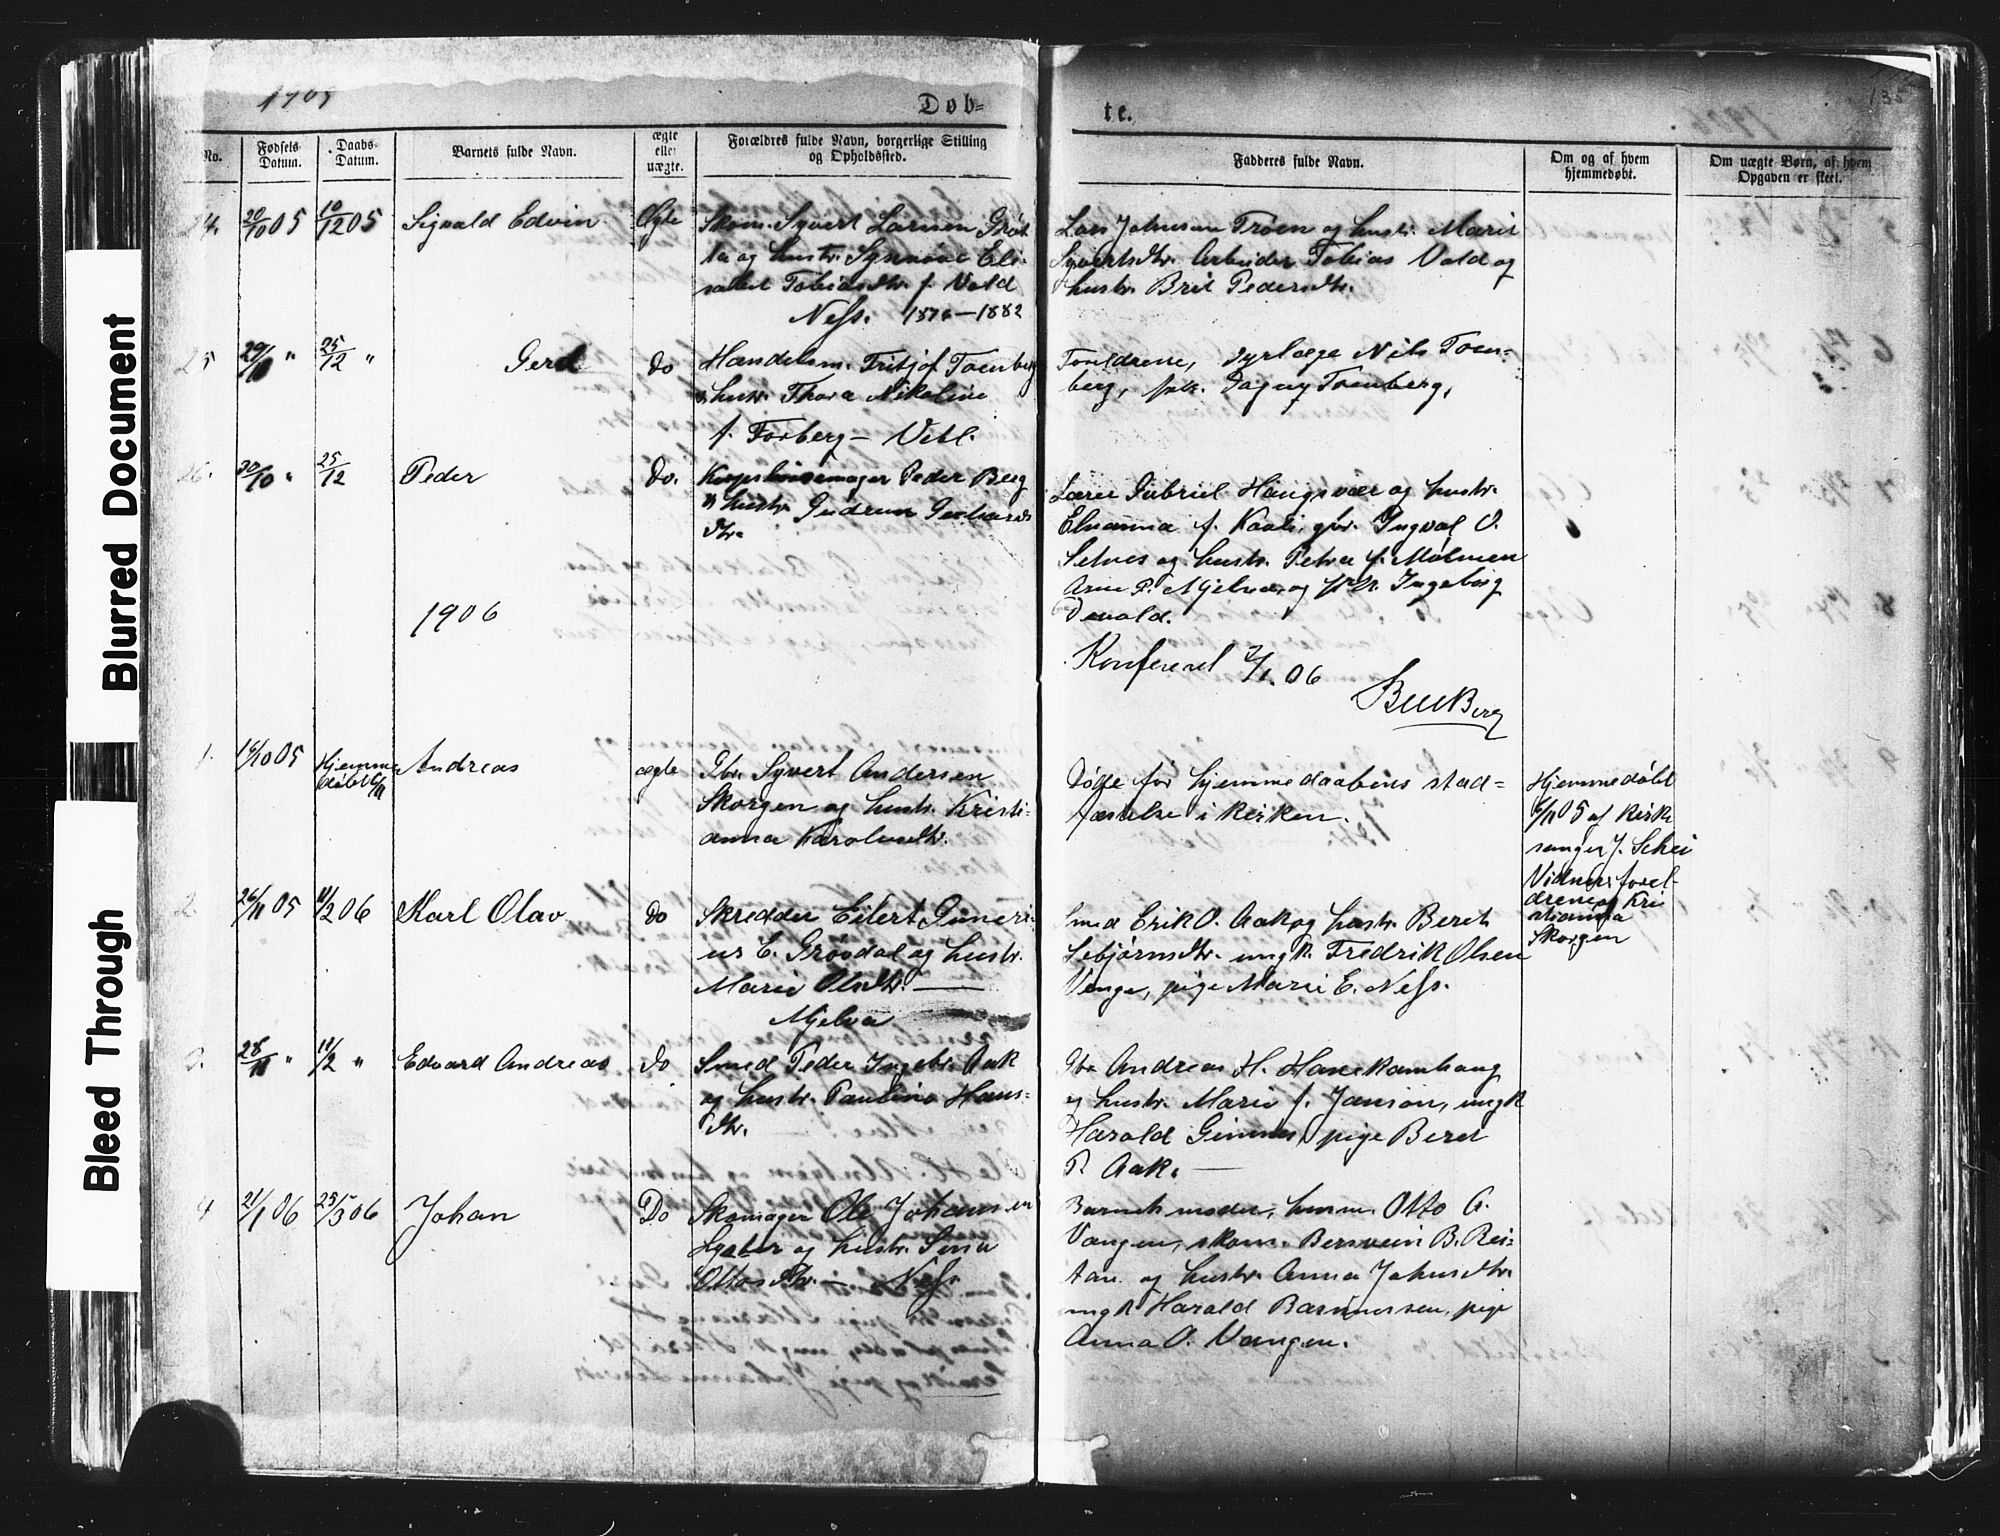 1905
Døb=
te.
135
No.
Fødsels
Datum.
Daabs-
Datum.
Barnets fulde Navn.
ægte
eller
uægte.
Forældres fulde Navn, borgerlige Stilling
og Opholdssted.
Fadderes fulde Navn.
Om og af hvem
hjemmedøbt.
Om uægte Børn, af hvem
Opgaven er skeet.
24. 20/10 05 10/12 05 Sigvald Edvin Ægte
Skom. Syvert Larsen Grøt
ta og hustr. Synnøve Eli
sabet Tobiasdtr. f. Vold
Ness. 1876-1882
Lars Johnsen Trøen og hustr. Marit
Syvertsdtr. Arbeider Tobias Vold og
hustr. Brit Pedersdtr.
25 29/10 " 25/12 " Gerd do
Handelsm. Fritjof Toenberg
og hustr. Thora Nikoline
f. Forberg - Vebl.
Foreldrene, dyrlæge Nils Toen=
berg, frk. Dagny Toenberg,
26. 30/10 " 25/12 Peder Do.
Peder Berg
og hustr. Gudrun Gerhards
dtr.
Lærer Gabriel Haugsvær og hustr.
f. Kaali, gbr. Ingval O.
Setnes og hustr. Petra f. Malmen
Arne P. Mjelva og frk. Ingeborg
Devold.
1906
Konfereret 2/1 06
Berg
1. 16/10 05 Hjemme
døbt 6/11 Andreas ægte
Gbr. Syvert Andersen
Skorgen og hustr. Kristi-
anna Karolusdtr.
Døde før hjemmedaabens stad=
fæstelse i kirken.
Hjemmedøbt
6/11 05 af kirke
sanger J. Schei
Vidner: forel-
drene og Kri
stianna
Skorgen
2. 26/11 05 11/2 06 Karl Olav do
Skredder Eilert Guneri
us E. Grøvdal og hustr.
Marie Olsdtr. —
Mjelva
Smed Erik O. Aak og hustr. Beret
Sebjørnsdtr. ungk. Fredrik Olsen
Venge, pige Marie E. Ness.
3. 28/11 " 11/2 " Edvard Andreas do
Smed Peder Ingebr. Aak
og hustr. Pauline Hans=
dtr.
Gbr Andreas H. Hanekamhaug
og hustr. Marie f. Janson, ungk
Harald Gimnes, pige Beret
P. Aak. —
4 21/1 06 25/3 06 Johan Do
Skomager Ole Johansen
og hustr.
Ottosdtr. — Ness.
Barnets moder, husm. Otto A.
Vangen, skom. Bersvein B. Rei=
tan og hustr. Anna Johnsdtr.
ungk Harald Rasmussen, pige
Anna O. Vangen.
Blurred Document
Bleed Through